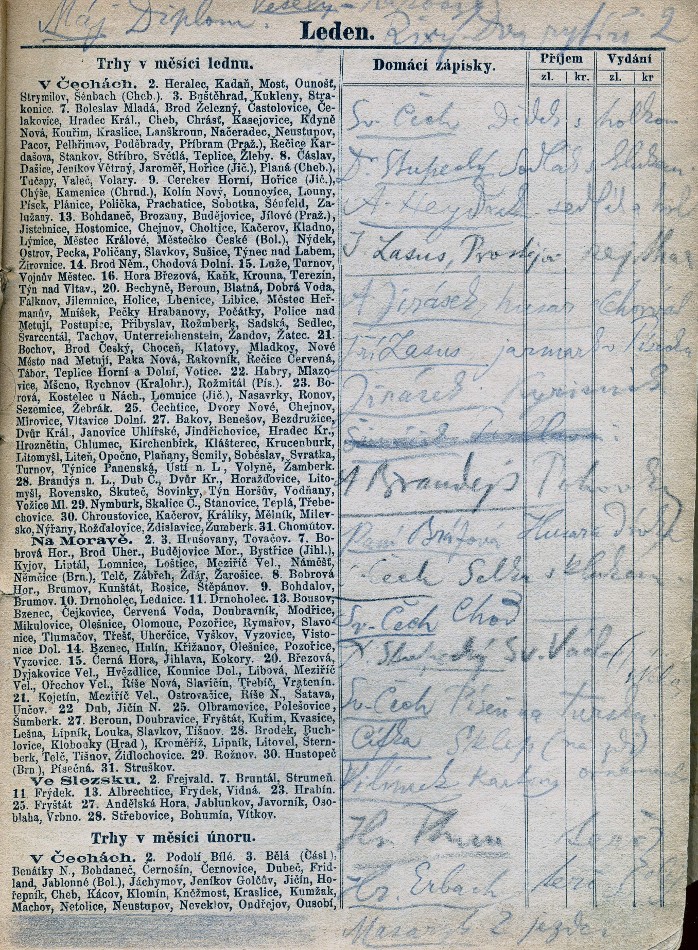 Máj Diplom. Veselý
Leden.
2
Trhy v měsíci lednu.
V Čechách. 2. Heralec, Kadaň, Most, Ounošť,
Strymilov, Šenbach (Cheb.). 3. Buštěhrad, Kukleny, Stra-
konice. 7. Boleslav Mladá, Brod Železný, Častolovice, Če-
lakovice, Hradec Král., Cheb, Chrást, Kasejovice, Kdyně
Nová, Kouřim, Kraslice, Lanškroun, Načeradec, Neustupov,
Pacov, Pelhřimov, Poděbrady, Příbram (Praž.), Rečice Kar-
dašova, Stankov, Stříbro, Světlá, Teplice, Žleby. 8. Čáslav,
Dašice, Jeníkov Větrný, Jaroměř, Hořice (Jič.), Planá (Cheb.),
Tučapy, Valeč, Volary. 9. Cerekev Horní, Hořice (Jič.),
Chýše, Kamenice (Chrud.), Kolín Nový, Lounovice, Louny,
Písek, Plánice, Polička, Prachatice, Sobotka, Sénfeld, Za-
lužany. 13. Bohdaneč, Brozany, Budějovice, Jílové (Praž.),
Jistebnice, Hostomice, Chejnov, Choltice, Kačerov, Kladno,
Lýmice, Městec Králové, Městečko České (Bol.), Nýdek,
Ostrov, Pecka, Poličany, Slavkov, Sušice, Týnec nad Labem,
Žirovnice. 14. Brod Něm., Chodová Dolní. 15. Luže, Turnov,
Vojnův Městec. 16. Hora Březová, Kaňk, Krouna, Terezín,
Týn nad Vltav., 20. Bechyně, Beroun, Blatná, Dobrá Voda,
Falknov, Jilemnice, Holice, Lhenice, Libice. Městec Heř-
manův, Mníšek, Pečky Hrabanovy, Počátky, Police nad
Metují, Postupice, Přibyslav, Rožmberk, Sadská, Sedlec,
Švarcentál, Tachov, Unterreichenstein, Žandov, Žatec. 21.
Bochov, Brod Český, Choceň, Klatovy, Mladkov, Nové
Město nad Metují, Paka Nová, Rakovník, Rečice Červená,
Tábor, Teplice Horní a Dolní, Votice. 22. Habry, Mlazo-
vice, Mšeno, Rychnov (Kralohr.), Rožmitál (Pís.). 23. Bo-
rová, Kostelec u Nách., Lomnice (Jič.), Nasavrky, Ronov,
Sezemice, Žebrák. 25. Čechtice, Dvory Nové, Chejnov,
Mirovice, Vitavice Dolní. 27. Bakov, Benešov, Bezdružice,
Dvůr Král., Janovice Uhlířské, Jindřichovice, Hradec Kr.,
Hroznětin, Chlumec, Kirchenbirk, Klášterec, Krucenburk,
Litomyšl, Liteň, Opočno, Plaňany, Semily, Soběslav, Svratka,
Turnov, Týnice Panenská, Ústí n. L., Volyně, Žamberk.
28. Brandýs n. L., Dub Č., Dvůr Kr., Horažďovice, Lito-
myšl, Rovensko, Skuteč, Sovinky, Týn Horšův, Vodňany,
Vožice Ml. 29. Nymburk, Skalice C., Stanovice, Teplá, Třebe-
chovice. 30. Chroustovice, Kačerov, Králíky, Mělník, Milev-
sko, Nýřany, Rožďalovice, Zdislavice, Žumberk. 31. Chomútov.
Na Moravě. 2. 3. Hrušovany, Tovačov. 7. Bo-
brová Hor., Brod Uher., Budějovice Mor., Bystřice (Jihl.),
Kyjov, Liptál, Lomnice, Loštice, Meziříč Vel., Náměšt,
Němčice (Brn.), Telč, Zábřeh, Žďár, Žarošice. 8. Bobrová
Hor., Brumov, Kunštát, Rosice, Štěpánov. 9. Bohdalov,
Brumov. 10. Drnoholec, Lednice. 11. Drnoholec. 13. Bousov,
Bzenec, Čejkovice, Červená Voda, Doubravník, Modřice,
Mikulovice, Olešnice, Olomouc, Pozořice, Rymařov, Slavo-
nice, Tlumačov, Třešť, Uherčice, Vyškov, Vyzovice, Visto-
nice Dol. 14. Bzenec, Hulín, Křižanov, Olešnice, Pozořice,
Vyzovice. 15. Černá Hora, Jihlava, Kokory. 20. Březová,
Dyjakovice Vel., Hvězdlice, Kounice Dol., Libová, Meziříč
Vel., Ořechov Vel., Ríše Nová, Slavičín, Třebíč, Vratěnín.
21. Kojetín, Meziříč Vel., Ostrovačice, Ríše N., Šatava,
Unčov. 22 Dub, Jičín N. 25. Olbramovice, Polešovice,
Šumberk. 27. Beroun, Doubravice, Fryšták, Kuřim, Kvasice,
Lešna, Lipník, Louka, Slavkov, Tišnov. 28. Brodek, Buch-
lovice, Klobouky (Hrad), Kroměříž, Lipník, Litovel, Štern-
berk, Telč, Tišnov, Židlochovice. 29. Rožnov. 30. Hustopeč
(Brn.), Písečná. 31. Struškov.
Ve Slezsku. 2. Frejvald. 7. Bruntál, Strumeň.
11 Frýdek. 13. Albrechtice, Frýdek, Vidná. 23. Hrabín.
25. Fryštát 27. Andělská Hora, Jablunkov, Javorník, Oso-
blaha, Vrbno. 28. Střebovice, Bohumín, Vítkov.
Trhy v měsíci únoru.
V Čechách. 2. Podolí Bílé. 3. Bělá (Čásl),
Benátky N., Bohdaneč, Černošín, Černovice, Dubeč, Frid-
land, Jablonné (Bol.), Jáchymov, Jeníkov Golčův, Jičín, Ho-
řepník, Cheb, Kácov, Klomín, Kněžmost, Kraslice, Kumžak,
Machov, Netolice, Neustupov, Neveklov, Ondřejov, Ousobí,
Domácí zápisky.
Příjem
Vydání
zl. kr. zl. kr
Sv. Čech Dedek s holkou
Dr Stupecký Sedlák s klukem
A
J Lasus,
A Jirásek husar
Lasus jarmark
Jirásek Kyrisník
A Brandejs
Paní Bráfova Husar
Čech Selka s klukem
Sv. Čech Chod
Stupecký Sv. Václav
Sv. Čech
Cifka Sklep
Hr. Thun
Hr. Erbach
Masaryk 2 jezdci